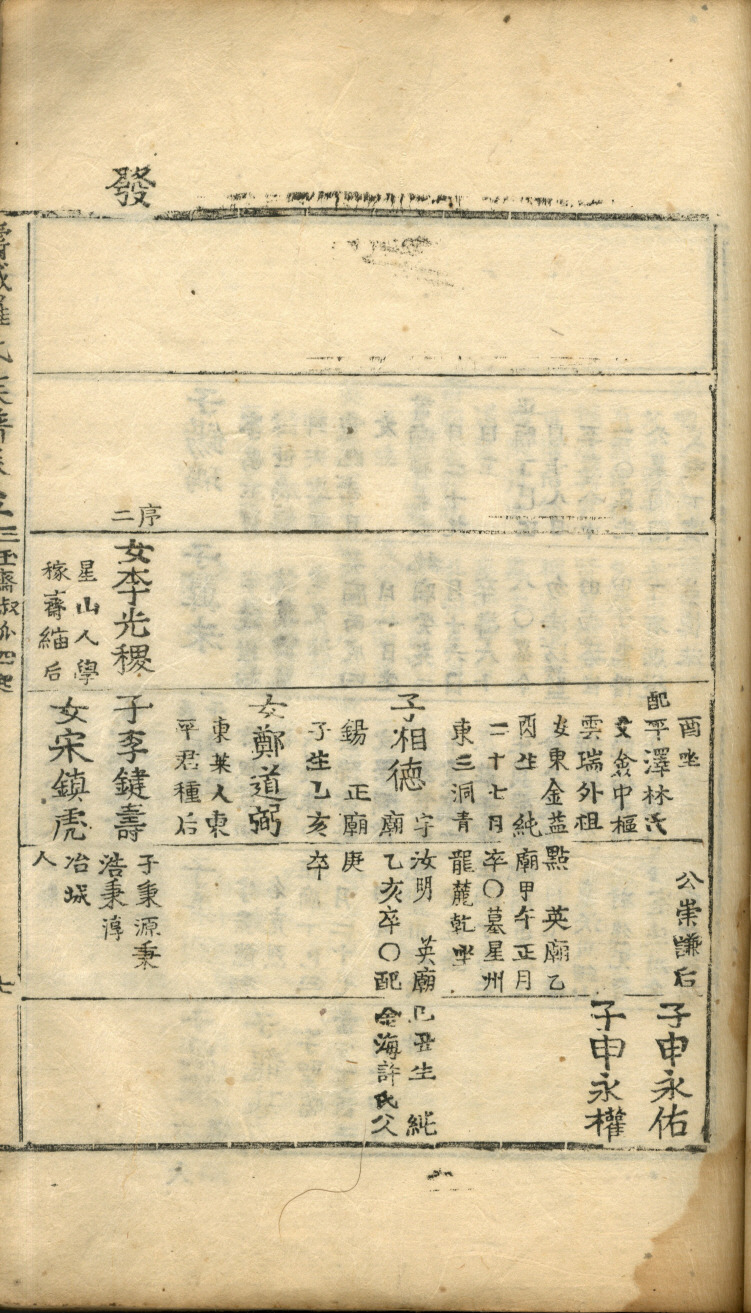 發
序二
女李光稷
星山人學
稼齋緬后
酉坐
公崇謙后
子申永佑
配平澤林氏
父僉中樞
雲瑞外祖
子申永權
安東金益點 英廟乙
酉生 純廟甲午正月
二十七日卒〇墓星州
東三洞青龍麓乾坐
子相德 字汝明 英廟己丑生 純
廟乙亥卒〇配金海許氏父
錫 正廟庚
子生乙亥卒
女鄭道弼
東萊人東
平君種后
子李鍵壽
子秉源秉
浩秉淳
女宋鎭虎
冶城
人
羅氏族譜卷之三
七